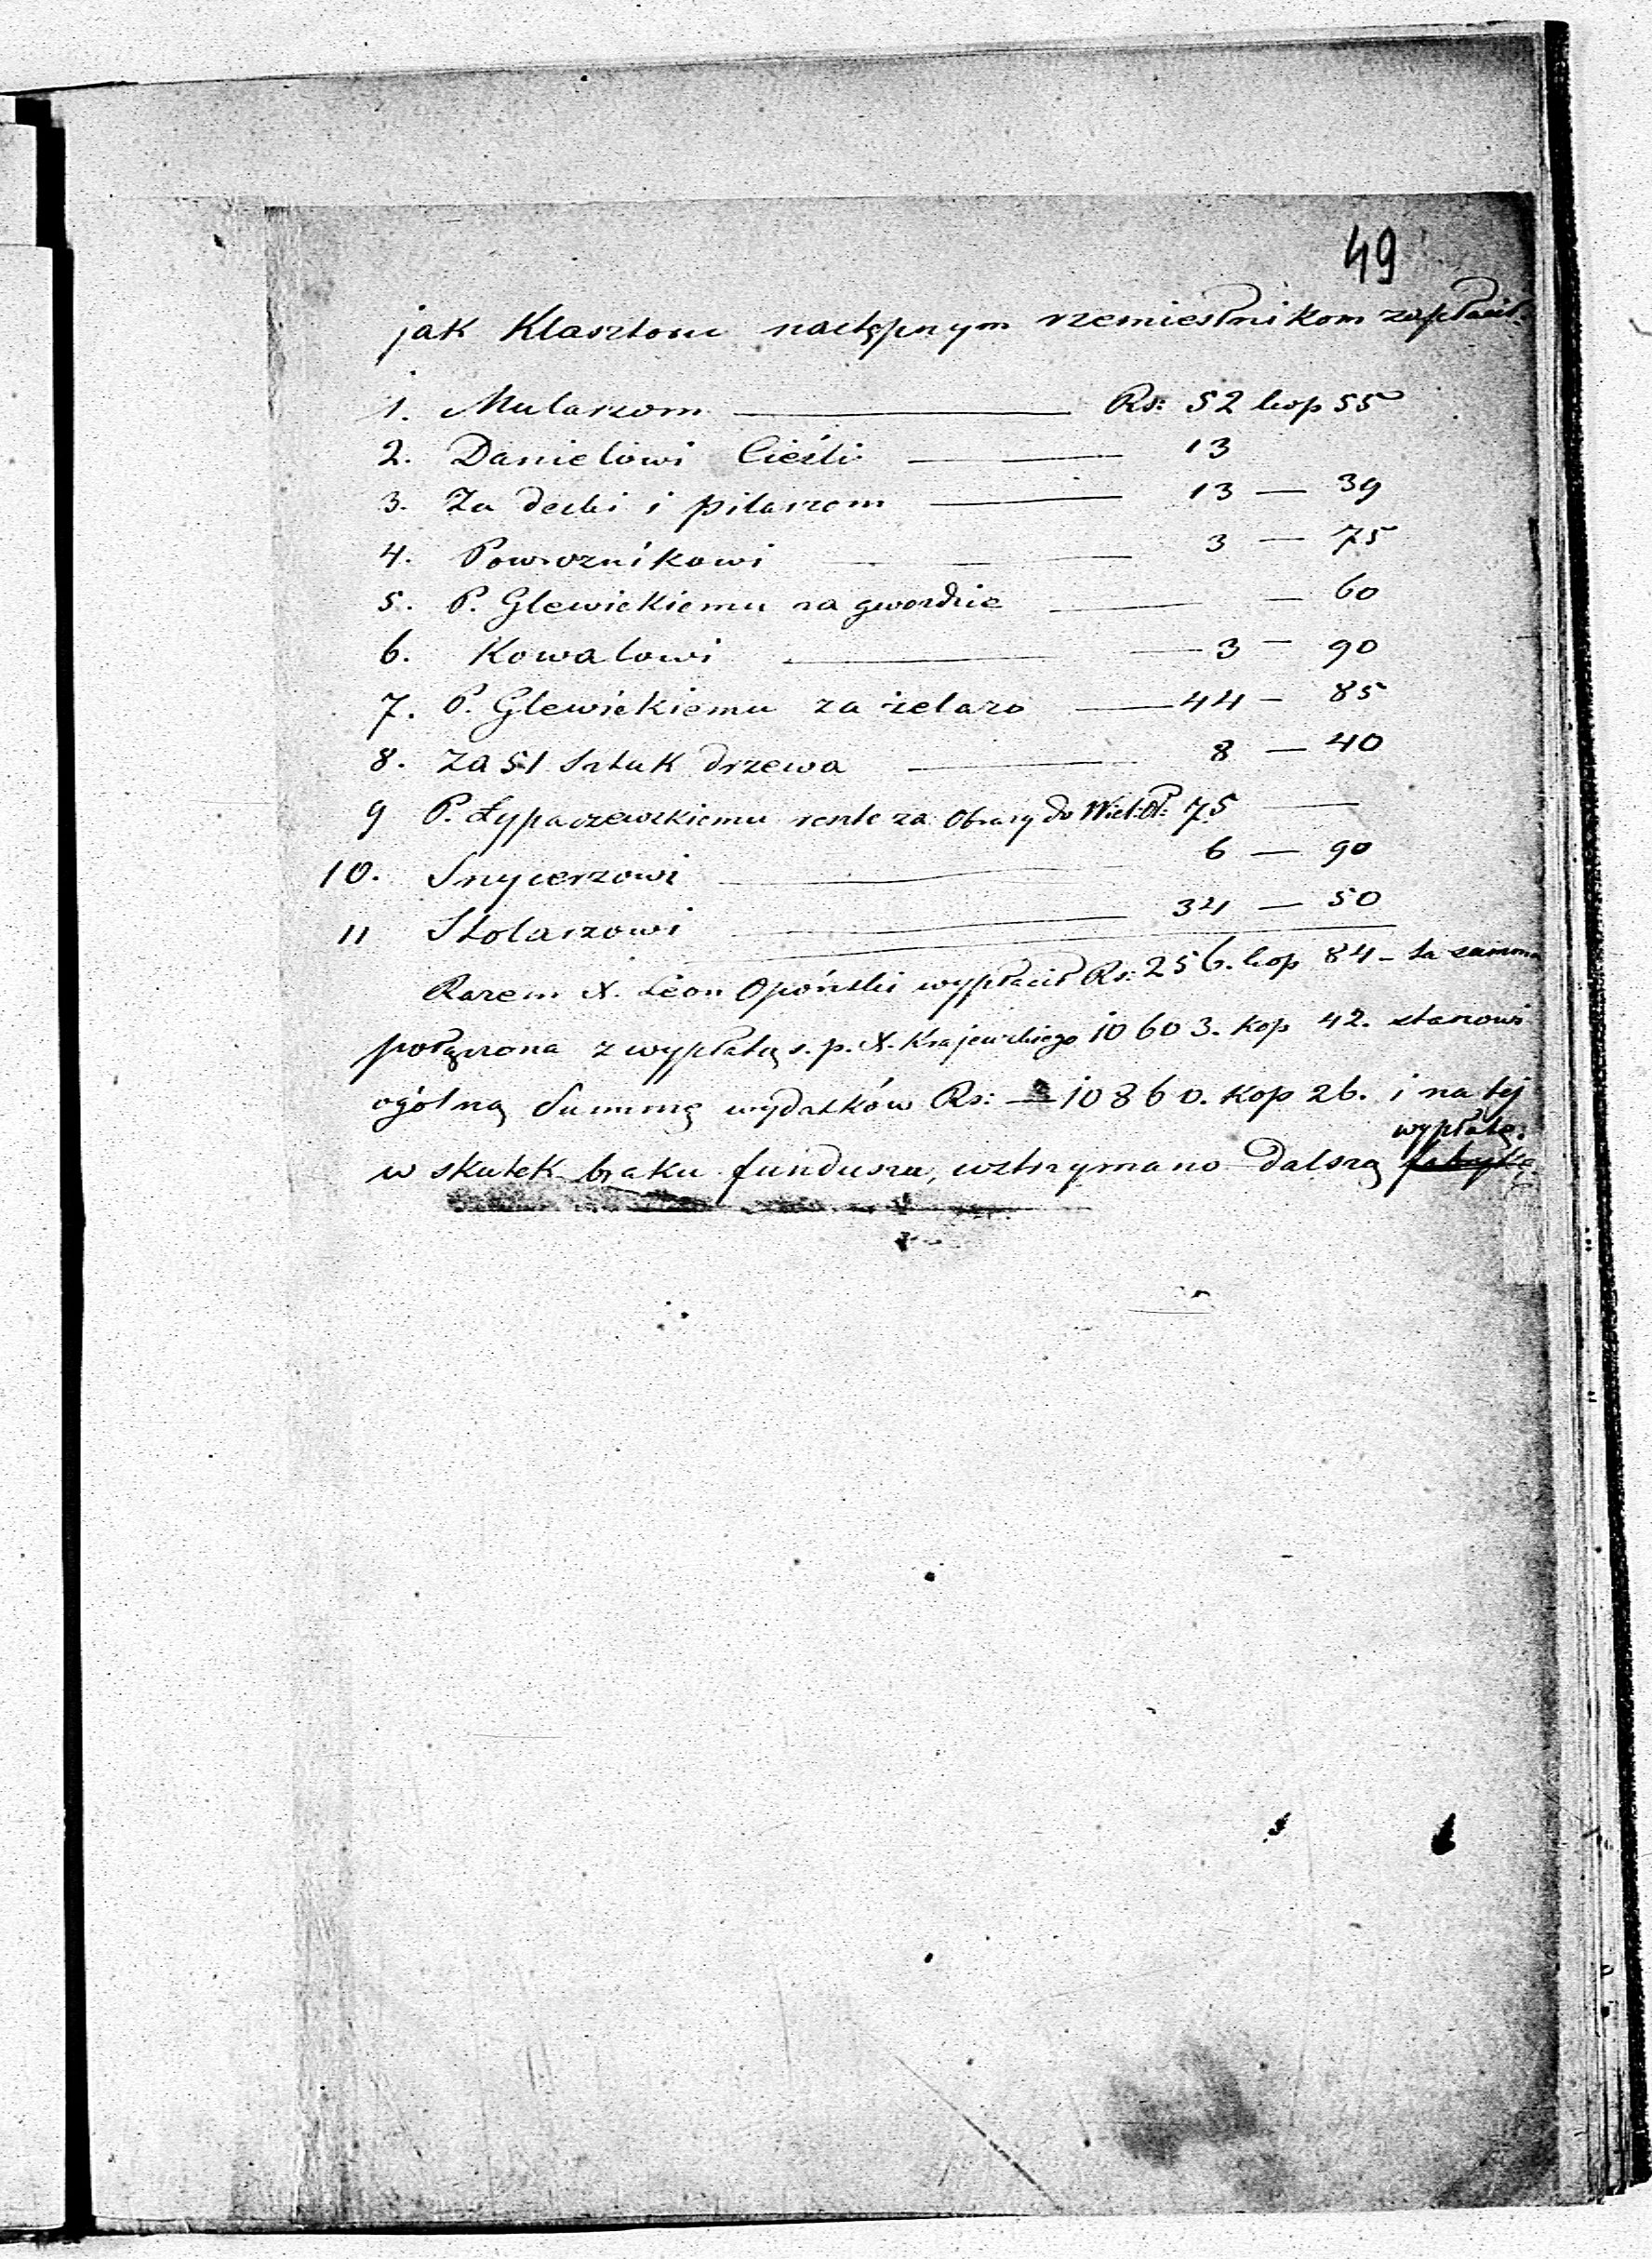 49
jak Klasztoru następnym rzemieslnikom zapłacił.
1. Mularzom — Rs: 52 kop 55
2. Danielowi Cieśli — 13
3. Za decki i pilarzom — 13 — 39
4. Powroznikowi — 3 — 75
5. P. Glewickiemu za gwordzie — — 60
6. Kowalowi — 3 — 90
7. P. Glewickiemu za żelazo — 44 — 85
8. Za 51 Sztuk drzewa — 8 — 40
9 P. Łypaczewskiemu za Obrazy do Wiel: Ołt: 75 —
10. Snycerzowi — 6 — 90
11 Stolarzowi — 34 — 50
Razem X. Leon Opoński wypłacił Rs: 256. kop 84 – ta summa
połączona z wypłatą s. p. X. Krajewskiego 10603. kop 42. stanowi
ogólną Summę wydatków Rs: — 10860. kop 26. i na tej
wypłatę.
w skutek braku funduszu, wstrzymano dalszą fabrykę